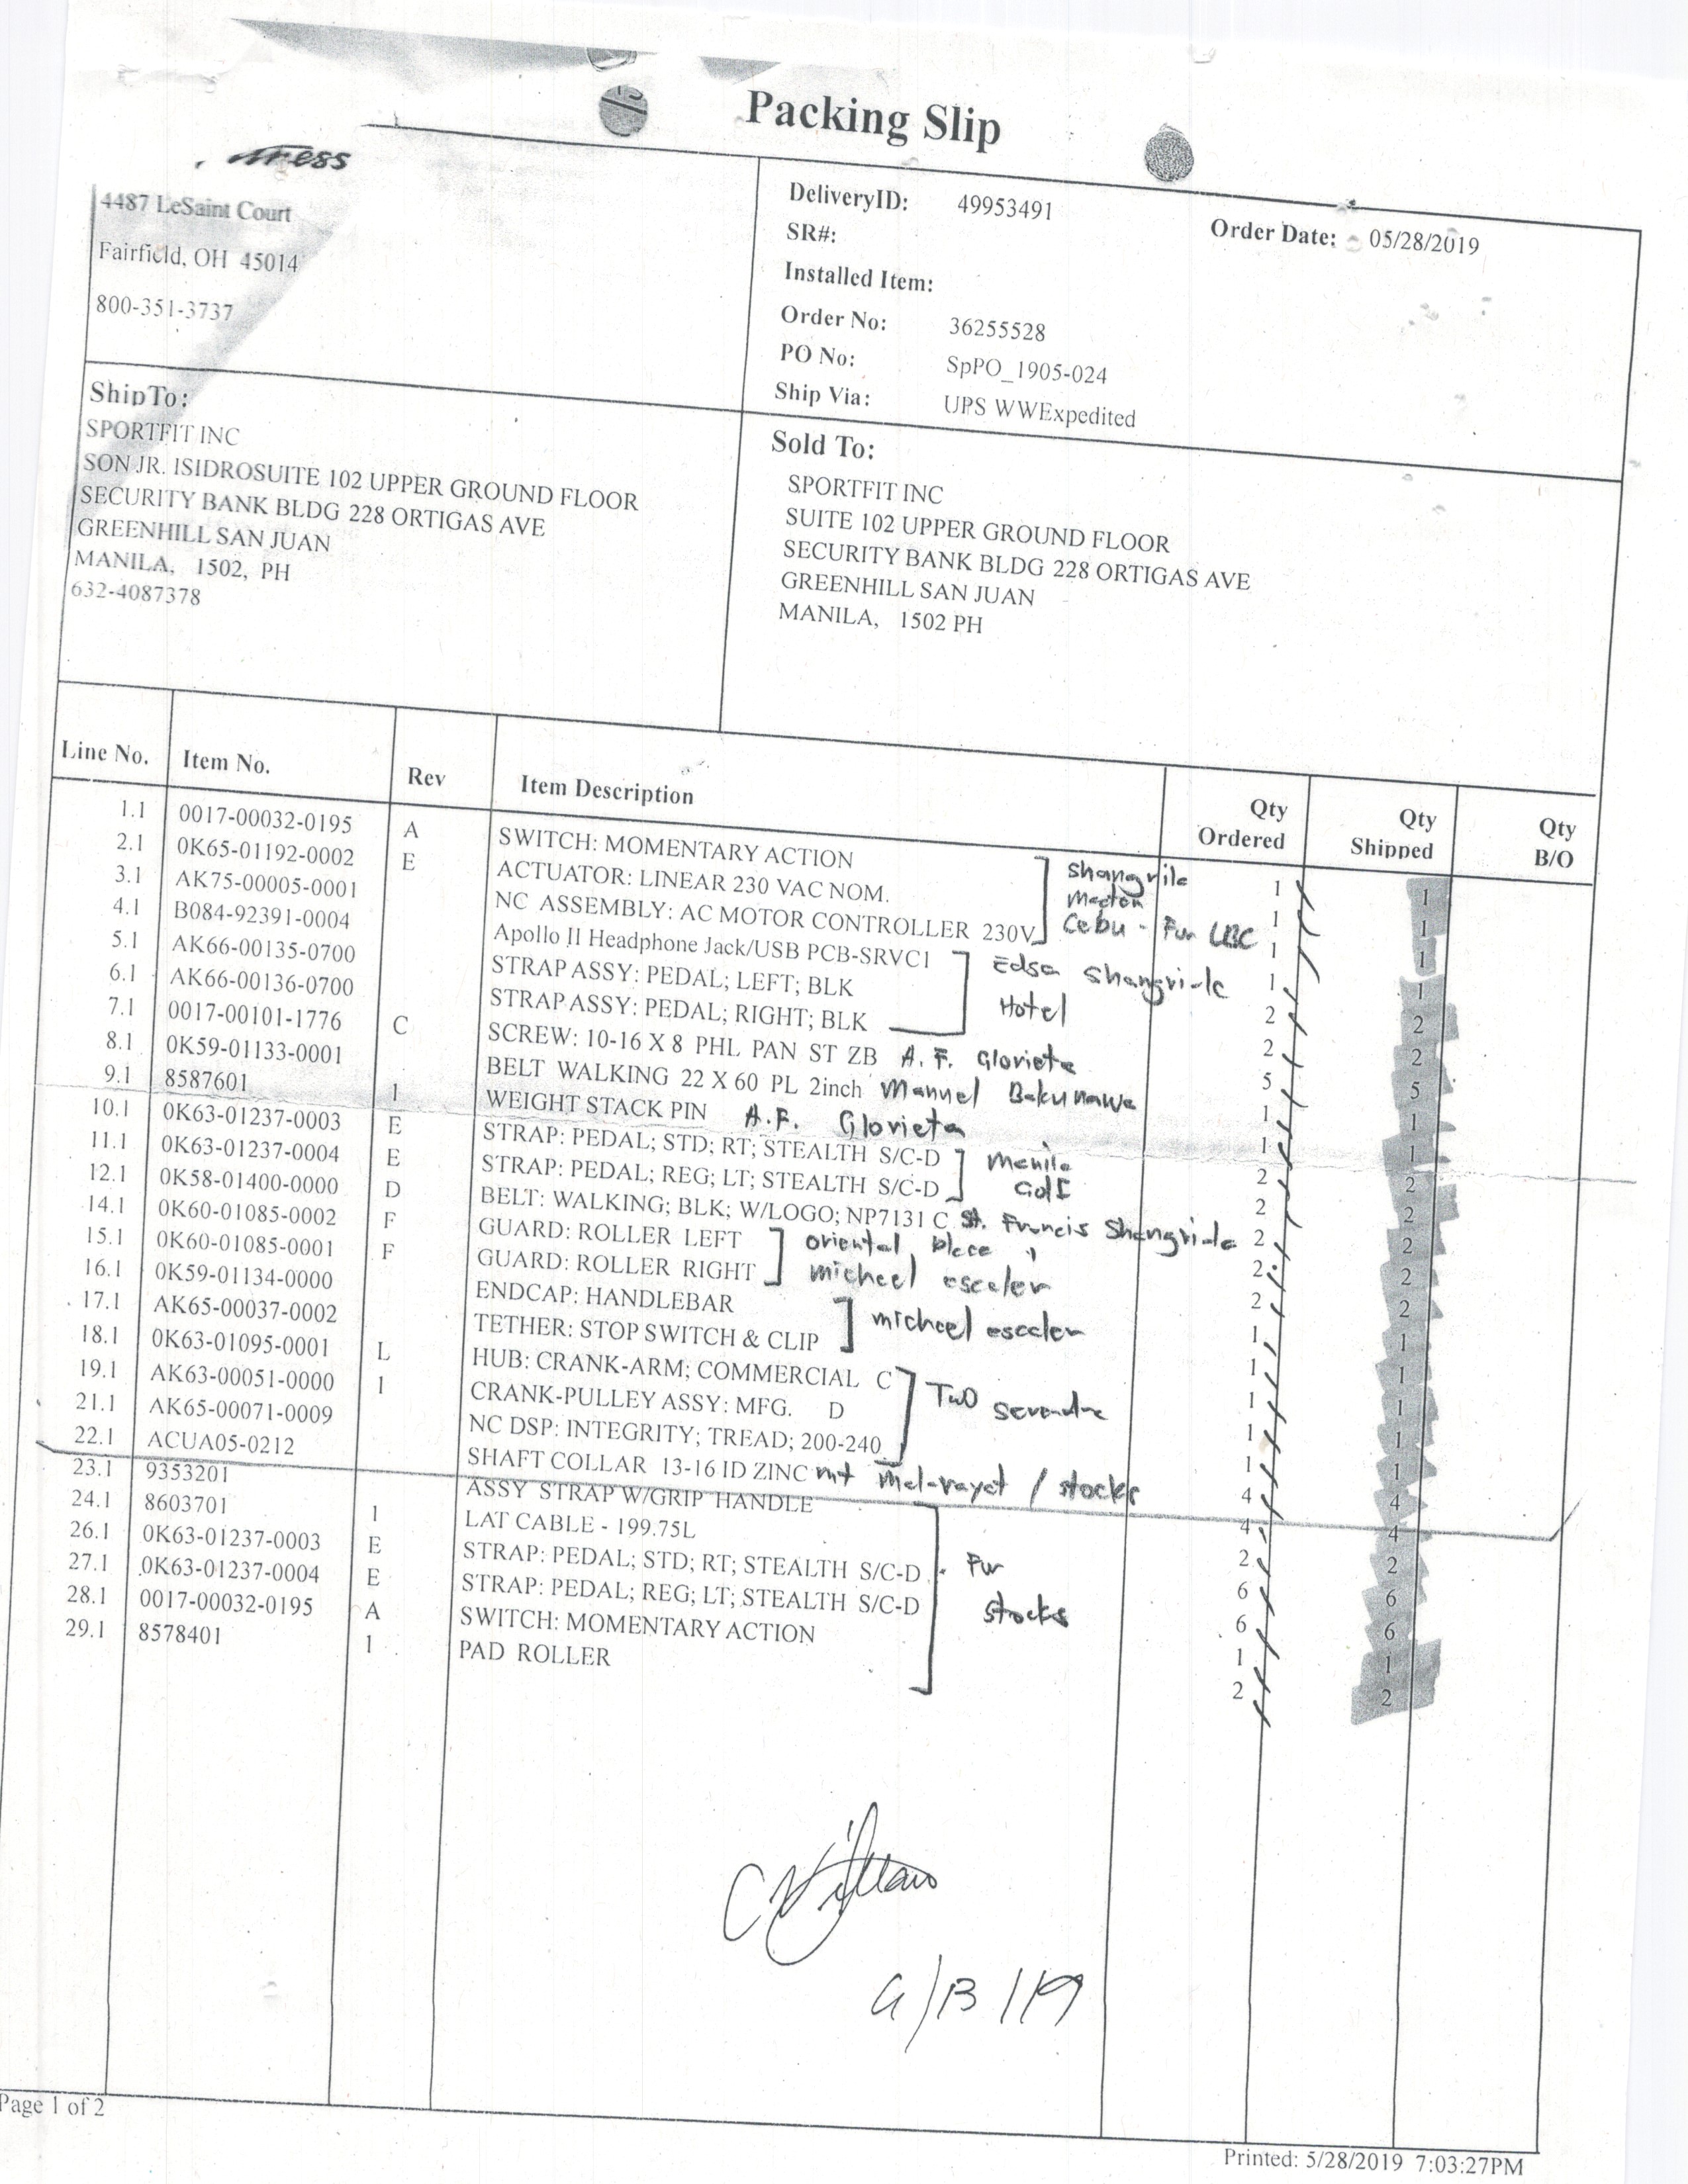 Packing Slip
4487 LeSaint Court
Fairfield, OH 45014
800-351-3737
DeliveryID: 49953491 Order Date: 05/28/2019
SR#:
Installed Item:
Order No: 36255528
PO No: SpPO_1905-024
Ship Via: UPS WWExpedited
ShipTo:
SPORTFIT INC
SON JR. ISIDROSUITE 102 UPPER GROUND FLOOR
SECURITY BANK BLDG 228 ORTIGAS AVE
GREENHILL SAN JUAN
MANILA, 1502, PH
632-4087378
Sold To:
SPORTFIT INC
SUITE 102 UPPER GROUND FLOOR
SECURITY BANK BLDG 228 ORTIGAS AVE
GREENHILL SAN JUAN
MANILA, 1502 PH
Line No. Item No. Rev Item Description Qty Ordered Qty Shipped Qty B/O
1.1 0017-00032-0195 A SWITCH: MOMENTARY ACTION 1 1
2.1 0K65-01192-0002 E ACTUATOR: LINEAR 230 VAC NOM. 1 1
3.1 AK75-00005-0001 NC ASSEMBLY: AC MOTOR CONTROLLER 230V 1 1
Shangrila
Mactan
Cebu - For LBC
4.1 B084-92391-0004 Apollo II Headphone Jack/USB PCB-SRVC1 1 1
5.1 AK66-00135-0700 STRAP ASSY: PEDAL; LEFT; BLK 2 2
6.1 AK66-00136-0700 STRAP ASSY: PEDAL; RIGHT; BLK 2 2
Edsa Shangri-la
Hotel
7.1 0017-00101-1776 C SCREW: 10-16 X 8 PHL PAN ST ZB A.F. Glorieta 5 5
8.1 0K59-01133-0001 BELT WALKING 22 X 60 PL 2inch Manuel Bakunawa 1 1
9.1 8587601 1 WEIGHT STACK PIN A.F. Glorieta 1 1
10.1 0K63-01237-0003 E STRAP: PEDAL; STD; RT; STEALTH S/C-D 2 2
11.1 0K63-01237-0004 E STRAP: PEDAL; REG; LT; STEALTH S/C-D 2 2
Manila
Golf
12.1 0K58-01400-0000 D BELT: WALKING; BLK; W/LOGO; NP7131 C St. Francis Shangri-la 2 2
14.1 0K60-01085-0002 F GUARD: ROLLER LEFT 2 2
15.1 0K60-01085-0001 F GUARD: ROLLER RIGHT 2 2
oriental place
michael escaler
16.1 0K59-01134-0000 ENDCAP: HANDLEBAR 1 1
17.1 AK65-00037-0002 TETHER: STOP SWITCH & CLIP 1 1
michael escaler
18.1 0K63-01095-0001 L HUB: CRANK-ARM; COMMERCIAL C 1 1
19.1 AK63-00051-0000 1 CRANK-PULLEY ASSY: MFG. D 1 1
21.1 AK65-00071-0009 NC DSP: INTEGRITY; TREAD; 200-240 1 1
Two serendra
22.1 ACUA05-0212 SHAFT COLLAR 13-16 ID ZINC mt Mal-rayat / stocks 4 4
23.1 9353201 ASSY STRAP W/GRIP HANDLE 4 4
24.1 8603701 1 LAT CABLE - 199.75L 2 2
26.1 0K63-01237-0003 E STRAP: PEDAL; STD; RT; STEALTH S/C-D 6 6
27.1 0K63-01237-0004 E STRAP: PEDAL; REG; LT; STEALTH S/C-D 6 6
28.1 0017-00032-0195 A SWITCH: MOMENTARY ACTION 1 1
29.1 8578401 1 PAD ROLLER 2 2
For
stocks
Page 1 of 2
Printed: 5/28/2019 7:03:27PM